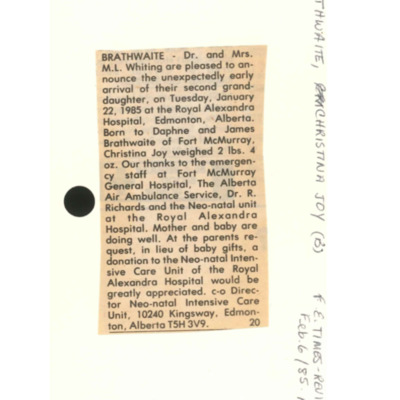 BRATHWAITE - Dr. and Mrs.
M.L. Whiting are pleased to an-
nounce the unexpectedly early
arrival of their second grand-
daughter, on Tuesday, January
22, 1985 at the Royal Alexandra
Hospital, Edmonton, Alberta.
Born to Daphne and James
Brathwaite of Fort McMurray,
Christina Joy weighed 2 lbs. 4
oz. Our thanks to the emergen-
cy staff at Fort McMurray
General Hospital, The Alberta
Air Ambulance Service, Dr. R.
Richards and the Neo-natal unit
at the Royal Alexandra
Hospital. Mother and baby are
doing well. At the parents re-
quest, in lieu of baby gifts, a
donation to the Neo-natal Inten-
sive Care Unit of the Royal
Alexandra Hospital would be
greatly appreciated. c-o Direc-
tor Neo-natal Intensive Care
Unit, 10240 Kingsway. Edmon-
ton, Alberta T5H 3V9. 20
THWAITE, CHRISTINA JOY (B)
F.E. TIMES-REVI
Feb. 6/85